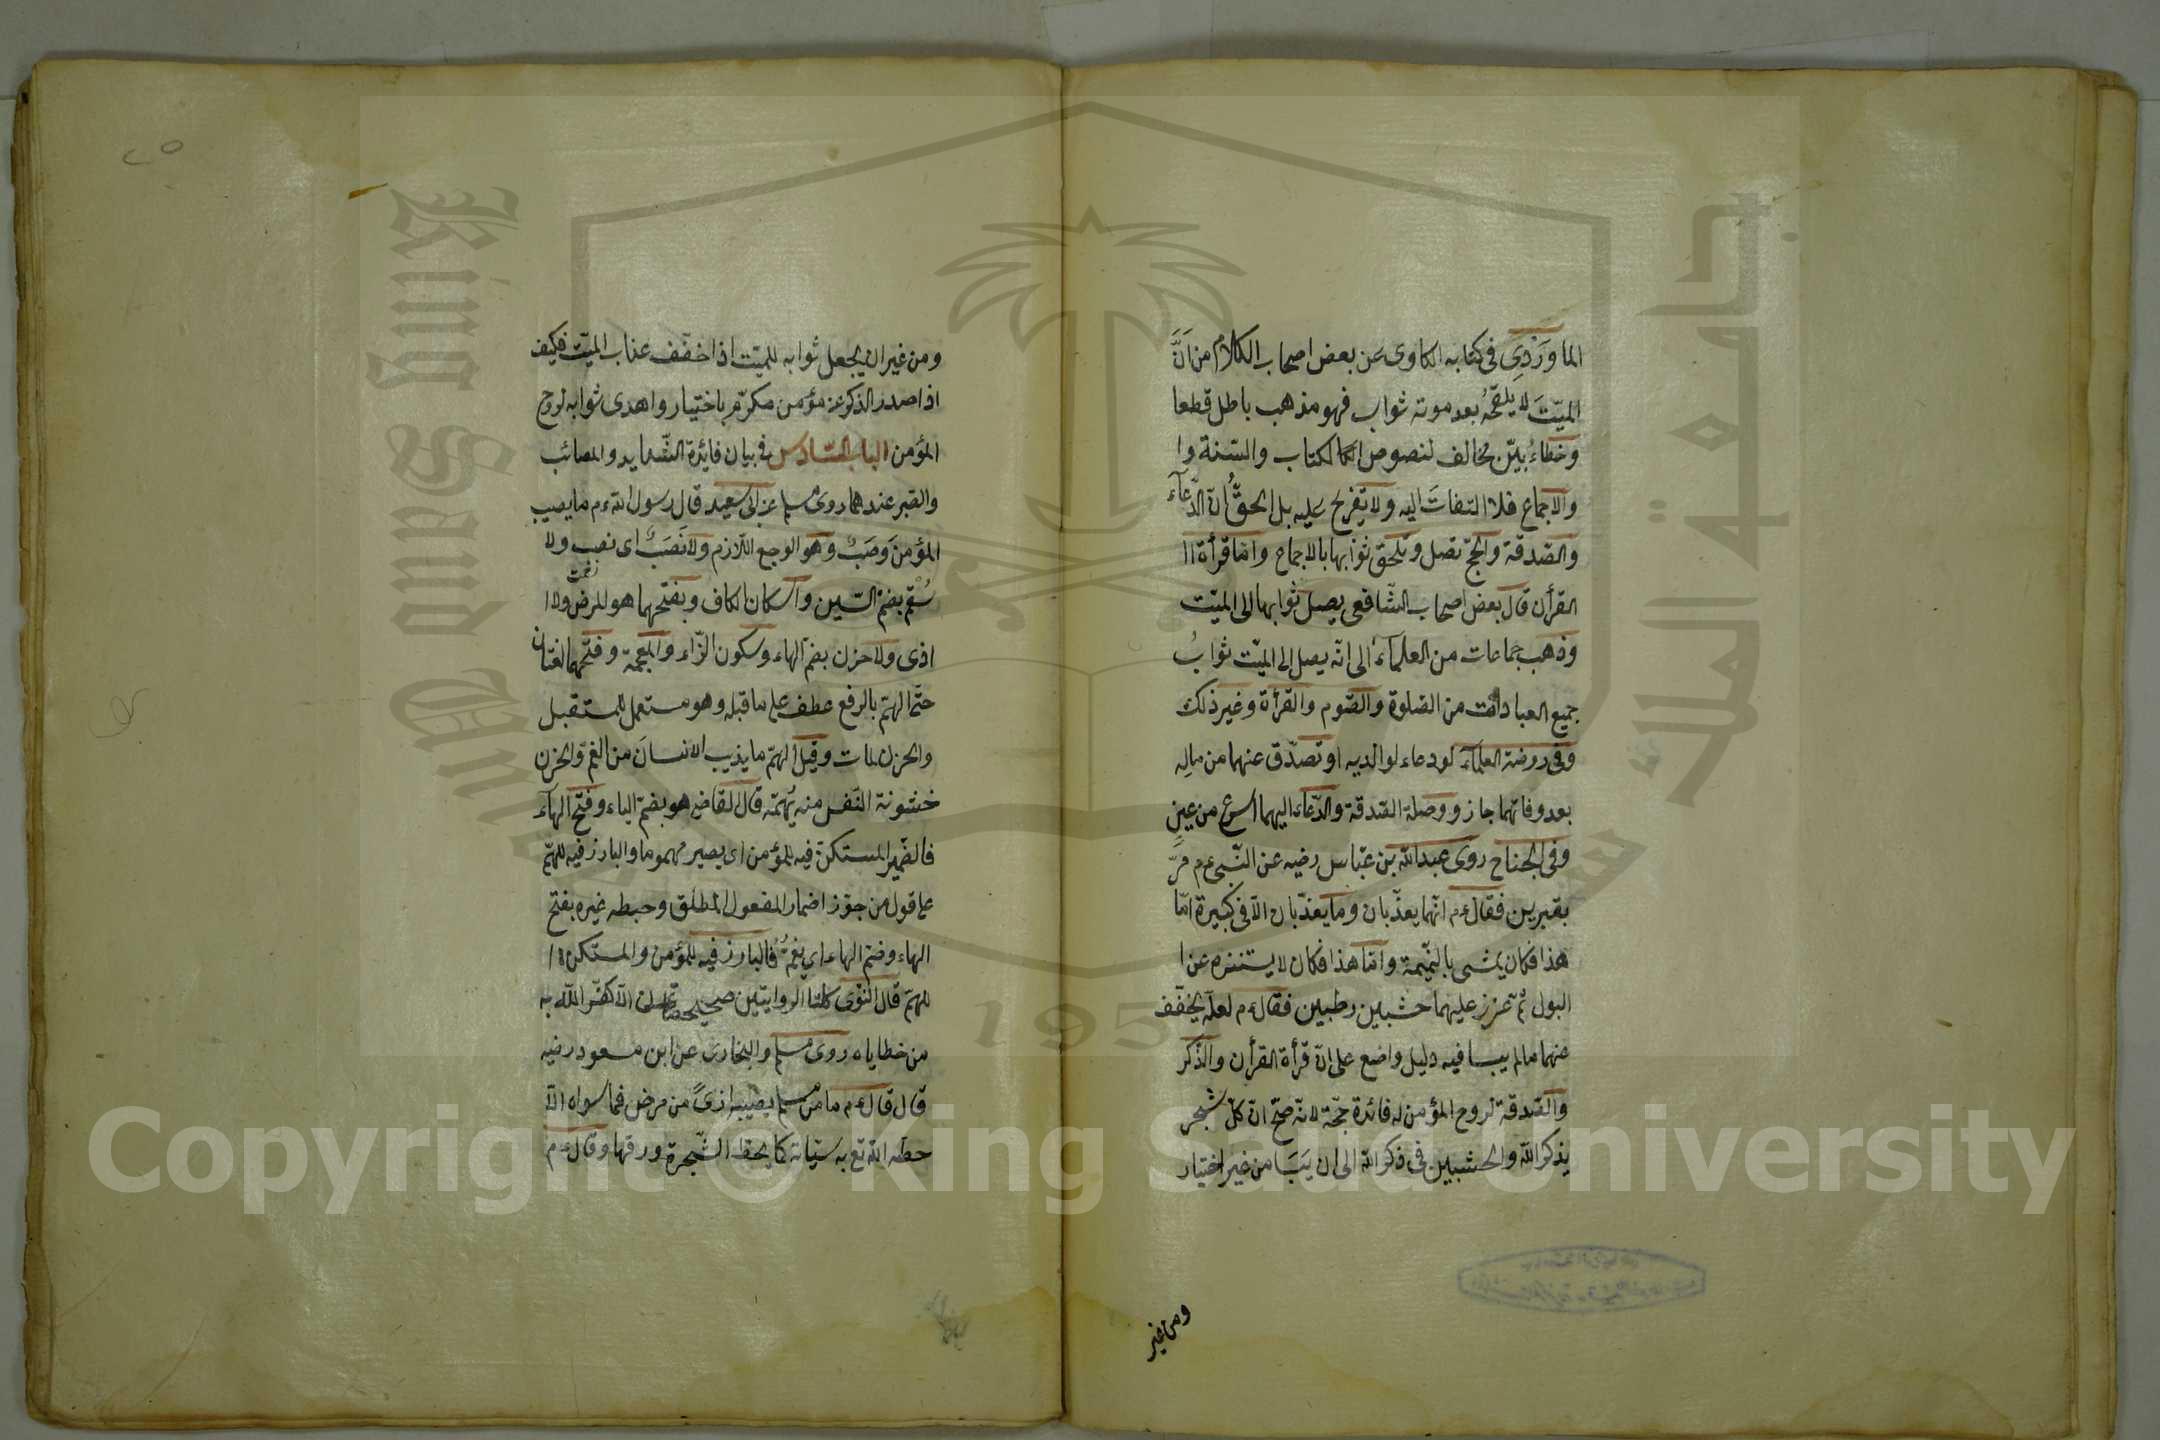 الماوَرْدِى فى كتابه الحاوى عن بعض اصحاب الكلام من اَنَّ
الميّتَ لا يلحقهُ بعد موته ثواب فهو مذهب باطل قطعا
وخطاءٌ بيّن مخالف لنصوص الكتاب والسّنة وا
والاجماع فلا التفاتَ اليه ولا تعريج عليه بل الحقُّ اَنّ الدّعآء
والصّدقة والحجّ تصل وتلحق ثوابها بالاجماع وامّا قرأة ا
القرأن قال بعض اصحاب الشّافعى يصل ثوابها الى الميّت
وذهب جماعات من العلمآء الى انّه يصل الى الميّت ثوابُ
جميع العبادات من الصّلوة والصّوم والقرأة وغير ذلك
وفى روضة العلمآء لو دعاء لوالديه او تصدّق عنهما من مالِه
بعد وفاتهما جاز ووصلة الصّدقة والدّعاء اليهما اسرع من عينٍ
وفى الجناح روى عبدالله بن عبّاس رضيه عن النّبى ع م مرّ
بقبرين فقال ع م انّهما يعذّبان وما يعذّبان الّا فى كبيرة امّا
هذا فكان يمشى بالنّميمة وامّا هذا فكان لا يستنزه عن ا
البول ثمّ غرز عليهما خشبين رطبين فقال ع م لعلّه يخفّف
عنهما ما لم ييبسا فيه دليل واضع على انّ قرأة القرأن والذّكر
والصّدقة لروح المؤمن له فائدة جمّة لانّه صحّ انّ كلّ شجر
يذكر الله والخشبين فى ذكر الله الى ان يَبَسَا من غير اختيار
ومن غير
٢٥
ومن غير ان يجعل ثوابه للميّت اذا خفّف عذاب الميّت فكيف
اذا صدر الذكر عن مؤمن مكرّم باختيار واهدى ثوابه لروح
المؤمن الباب السّادس فى بيان فائدة الشّدايد والمصائب
والصّبر عندهما روى مسلم عن ابى سعيد قال رسول الله ع م ما يصيب
المؤمن وَصَبٌ وهو الوجع اللّازم ولا نَصَبٌ اى تعب ولا
سُقْم بضمّ السّين واسكان الكاف وبفتحهما هو المرض ولا ا
اذى ولا حزن بضمّ الهاء وسكون الزّاء والمعجمة وفتحهما لغتان
حتّى الهمّ بالرفع عطف على ما قبله وهو مستعمل للمستقبل
والحزن لمات وقيل الهمّ ما يذيب الانسانَ من الغمّ والحزن
خشونة النّفس منه يُهِمّه قال القاضى هو بضمّ الياء وفتح الهآء
فالضّمير المستكنّ فيه للمؤمن اى يصير مهموما والبارز فيه للهمّ
على قول من جوّز اضمار المفعول المطلق وضبطه غيره بفتح
الهاء وضم الهاء اى يغمّه فالبارز فيه للمؤمن والمستكنّ ا
للهمّ قال النّوْى كلتا الرّوايتين صحيحتان الّا كفّر الله به
من خطاياه روى مسلم والبخارى عن ابن مسعود رضيه
قال قال ع م ما من مسلم يصيبه اذىً من مرض فما سواه الّا
حطّه الله تع به سيّاته كما يحطّ الشّجرة ورقها وقال ع م
Copyright © King Saud University
جامعة الملك سعود
King Saud University
195